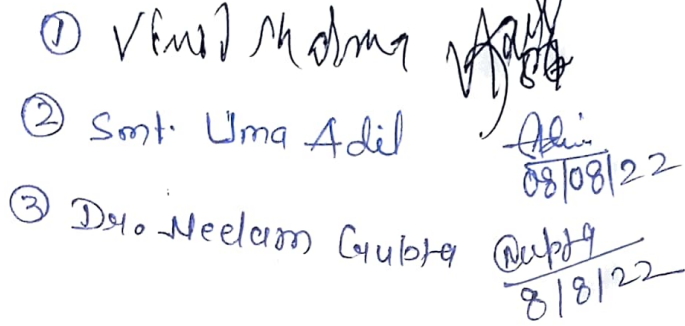 ① Vinod Sharma
② Smt. Uma Adil
08/08/22
③ Dr. Neelam Gupta Ngupta
8/8/22